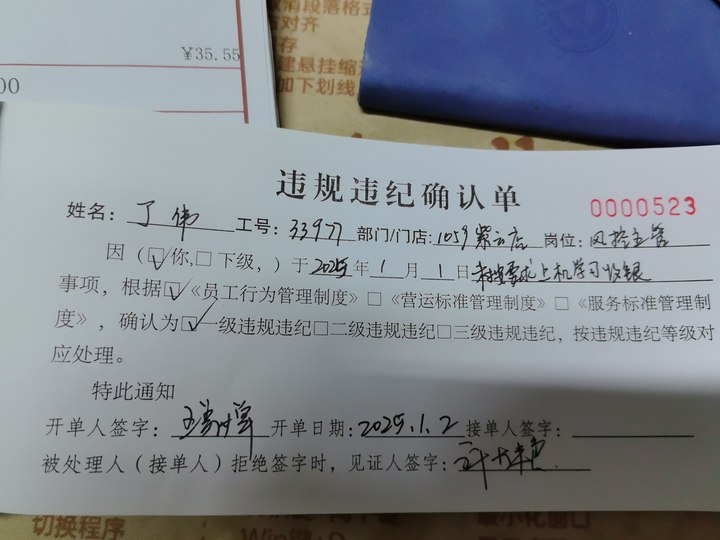 消段落格式
对齐
存
建悬挂缩进
加下划线
¥35.55
00
违规违纪确认单
0000523
姓名：丁伟 工号：33977 部门/门店：1059紫云店 岗位：风控主管
因（☑你,□下级，）于2025年1月1日未按要求上机学习收银
事项，根据☑《员工行为管理制度》□《营运标准管理制度》□《服务标准管理制
度》，确认为☑一级违规违纪□二级违规违纪□三级违规违纪，按违规违纪等级对
应处理。
特此通知
开单人签字： 开单日期：2025.1.2 接单人签字：
被处理人（接单人）拒绝签字时，见证人签字：
切换程序
Win键+D
最小化窗口